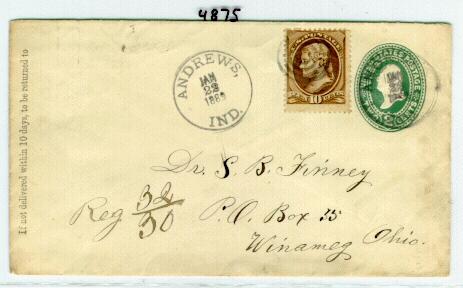 4875
If not delivered within 10 days, to be returned to
ANDREWS,
JAN
22
IND.
U.S. POSTAGE
10
UNITED STATES POSTAGE
2 CENTS
Dr. S. B. Finney
Reg 32/30
P.O. Box 35
Winameg Ohio.